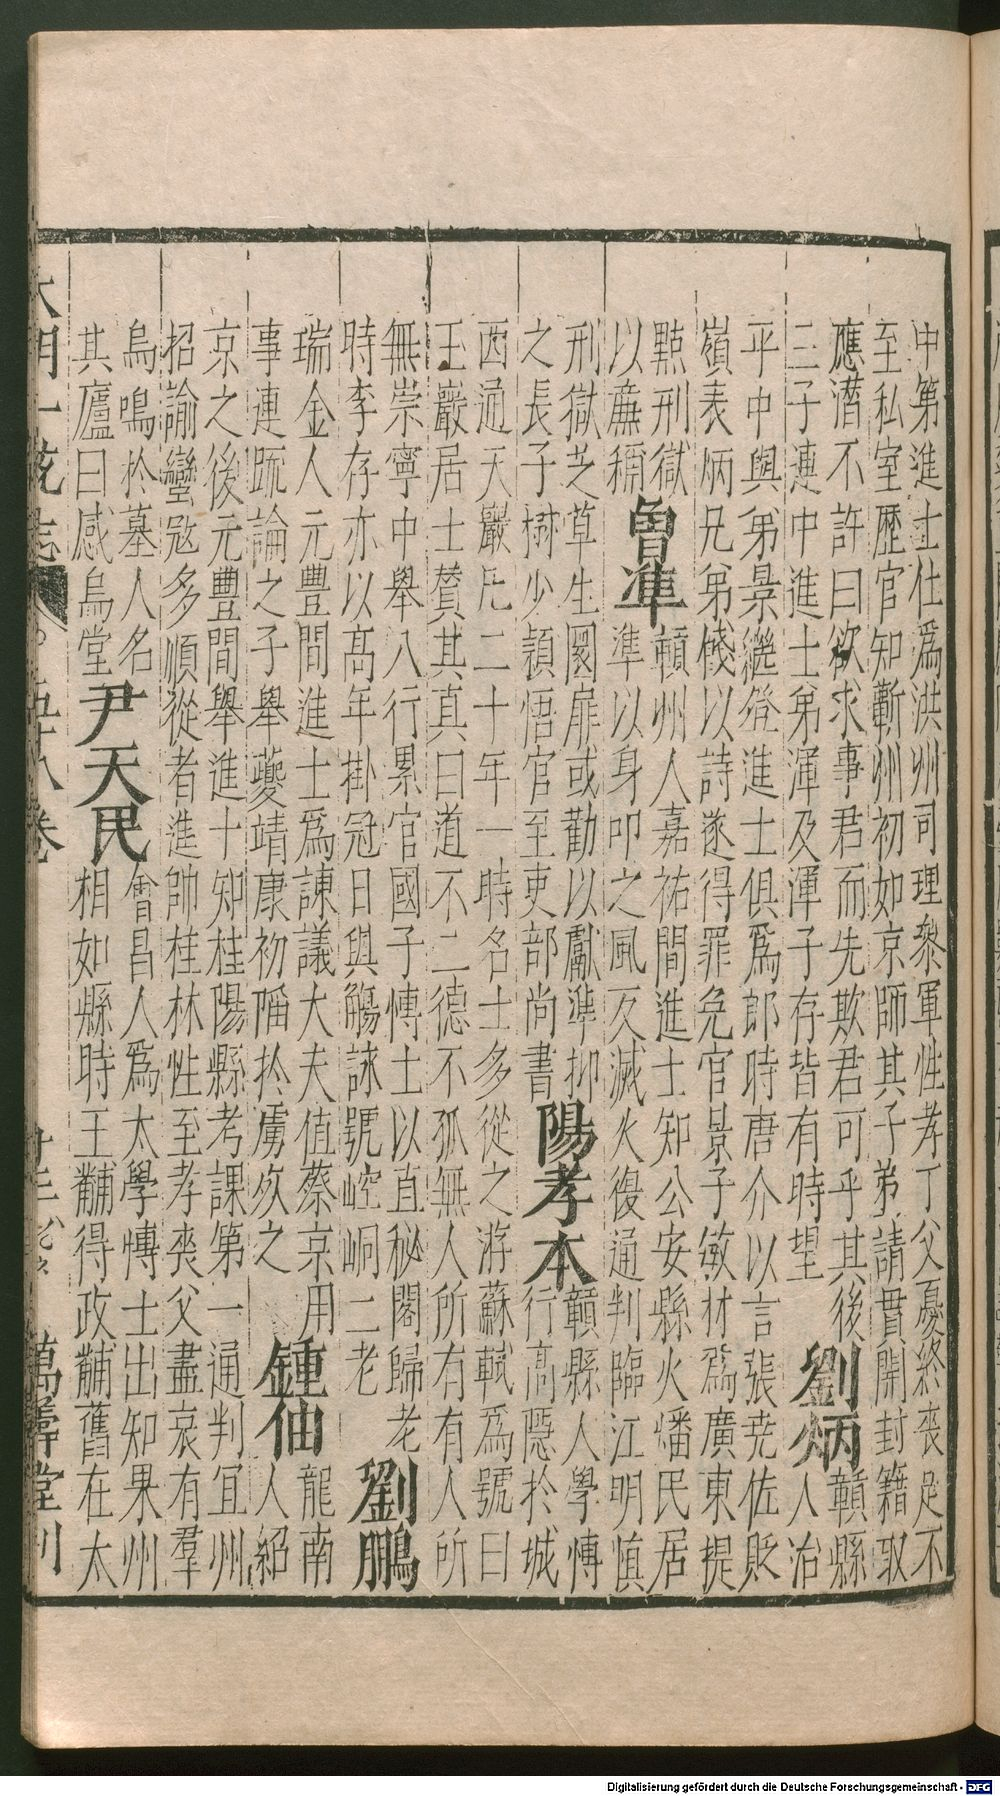 中第進士仕為洪州司理叅軍性孝丁父憂終喪足不
至私室歷官知蘄州初如京師其子弟請貫開封籍取
應潛不許曰欲求事君而先欺君可乎其後劉炳贑縣
三子連中進士弟渾及渾子存皆有時望人治
平中與弟景繼登進士俱為郎時唐介以言張堯佐貶
嶺表炳兄弟餞以詩遂得罪免官景子敏材為廣東提
㸃刑獄曾準贑州人嘉祐間進士知公安縣火燔民居
以廉稱準以身叩之風反滅火復通判臨江明慎
刑獄芝草生圜扉或勸以獻準抑陽孝本贑縣人學慱
之長子樹少頴悟官至吏部尚書行高隱於城
西通天巖凡二十年一時名士多從之游蘇軾為號曰
玉巖居士賛其真曰道不二德不孤無人所有有人所
無崇寧中舉八行累官國子愽士以直秘閣歸老劉鵬
時李存亦以髙年掛冠日與觴詠號崆峒二老
瑞金人元豐間進士為諫議大夫值蔡京用鍾伷龍南
事連䟽論之子舉夔靖康初陷於虜攻之人紹
京之後元豐間舉進十知桂陽縣考課第一通判宜州
招諭蠻宼多順從者進帥桂林性至孝喪父盡哀有羣
烏鳴於墓人名尹天民會昌人為太學愽士出知果州
其廬曰感烏堂相如縣時王黼得政黼舊在太
大明一統志 五十八卷 廿三 萬壽堂刊
Digitalisierung gefördert durch die Deutsche Forschungsgemeinschaft - DFG